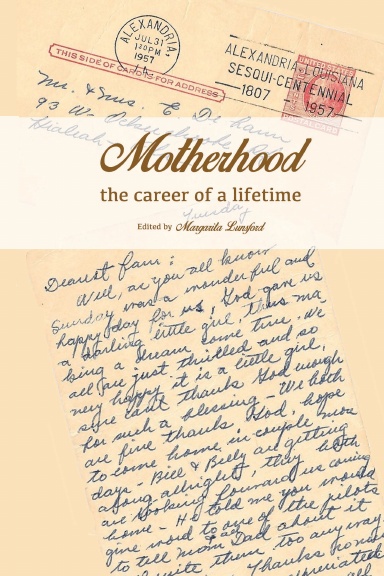 ALEXANDRIA
JUL 31
1 30 PM
1957
LA.
ALEXANDRIA-LOUISIANA
SESQUI-CENTENNIAL
1807 - 1957
THIS SIDE OF CARD IS FOR ADDRESS
UNITED STATES
Mr. & Mrs. E De
93 W.
Hialeah
Motherhood
the career of a lifetime
Sunday
Edited by Margarita Lunsford
Dearest fam:
Well, as you all know
Sunday was a wonderful and
happy day for us, God gave us
a darling little girl, thus ma
king a dream come true. We
all are just thrilled and so
very happy it is a little girl,
sure can't thank God enough
for such a blessing - We both
are fine thanks God, hope
to come home in couple more
days - Bill & Billy are getting
along allright, they both
are looking forward us coming
home - H told me you would
give word to one of the pilots
to tell Mom & Dad about it
write them too anyway.
Thanks